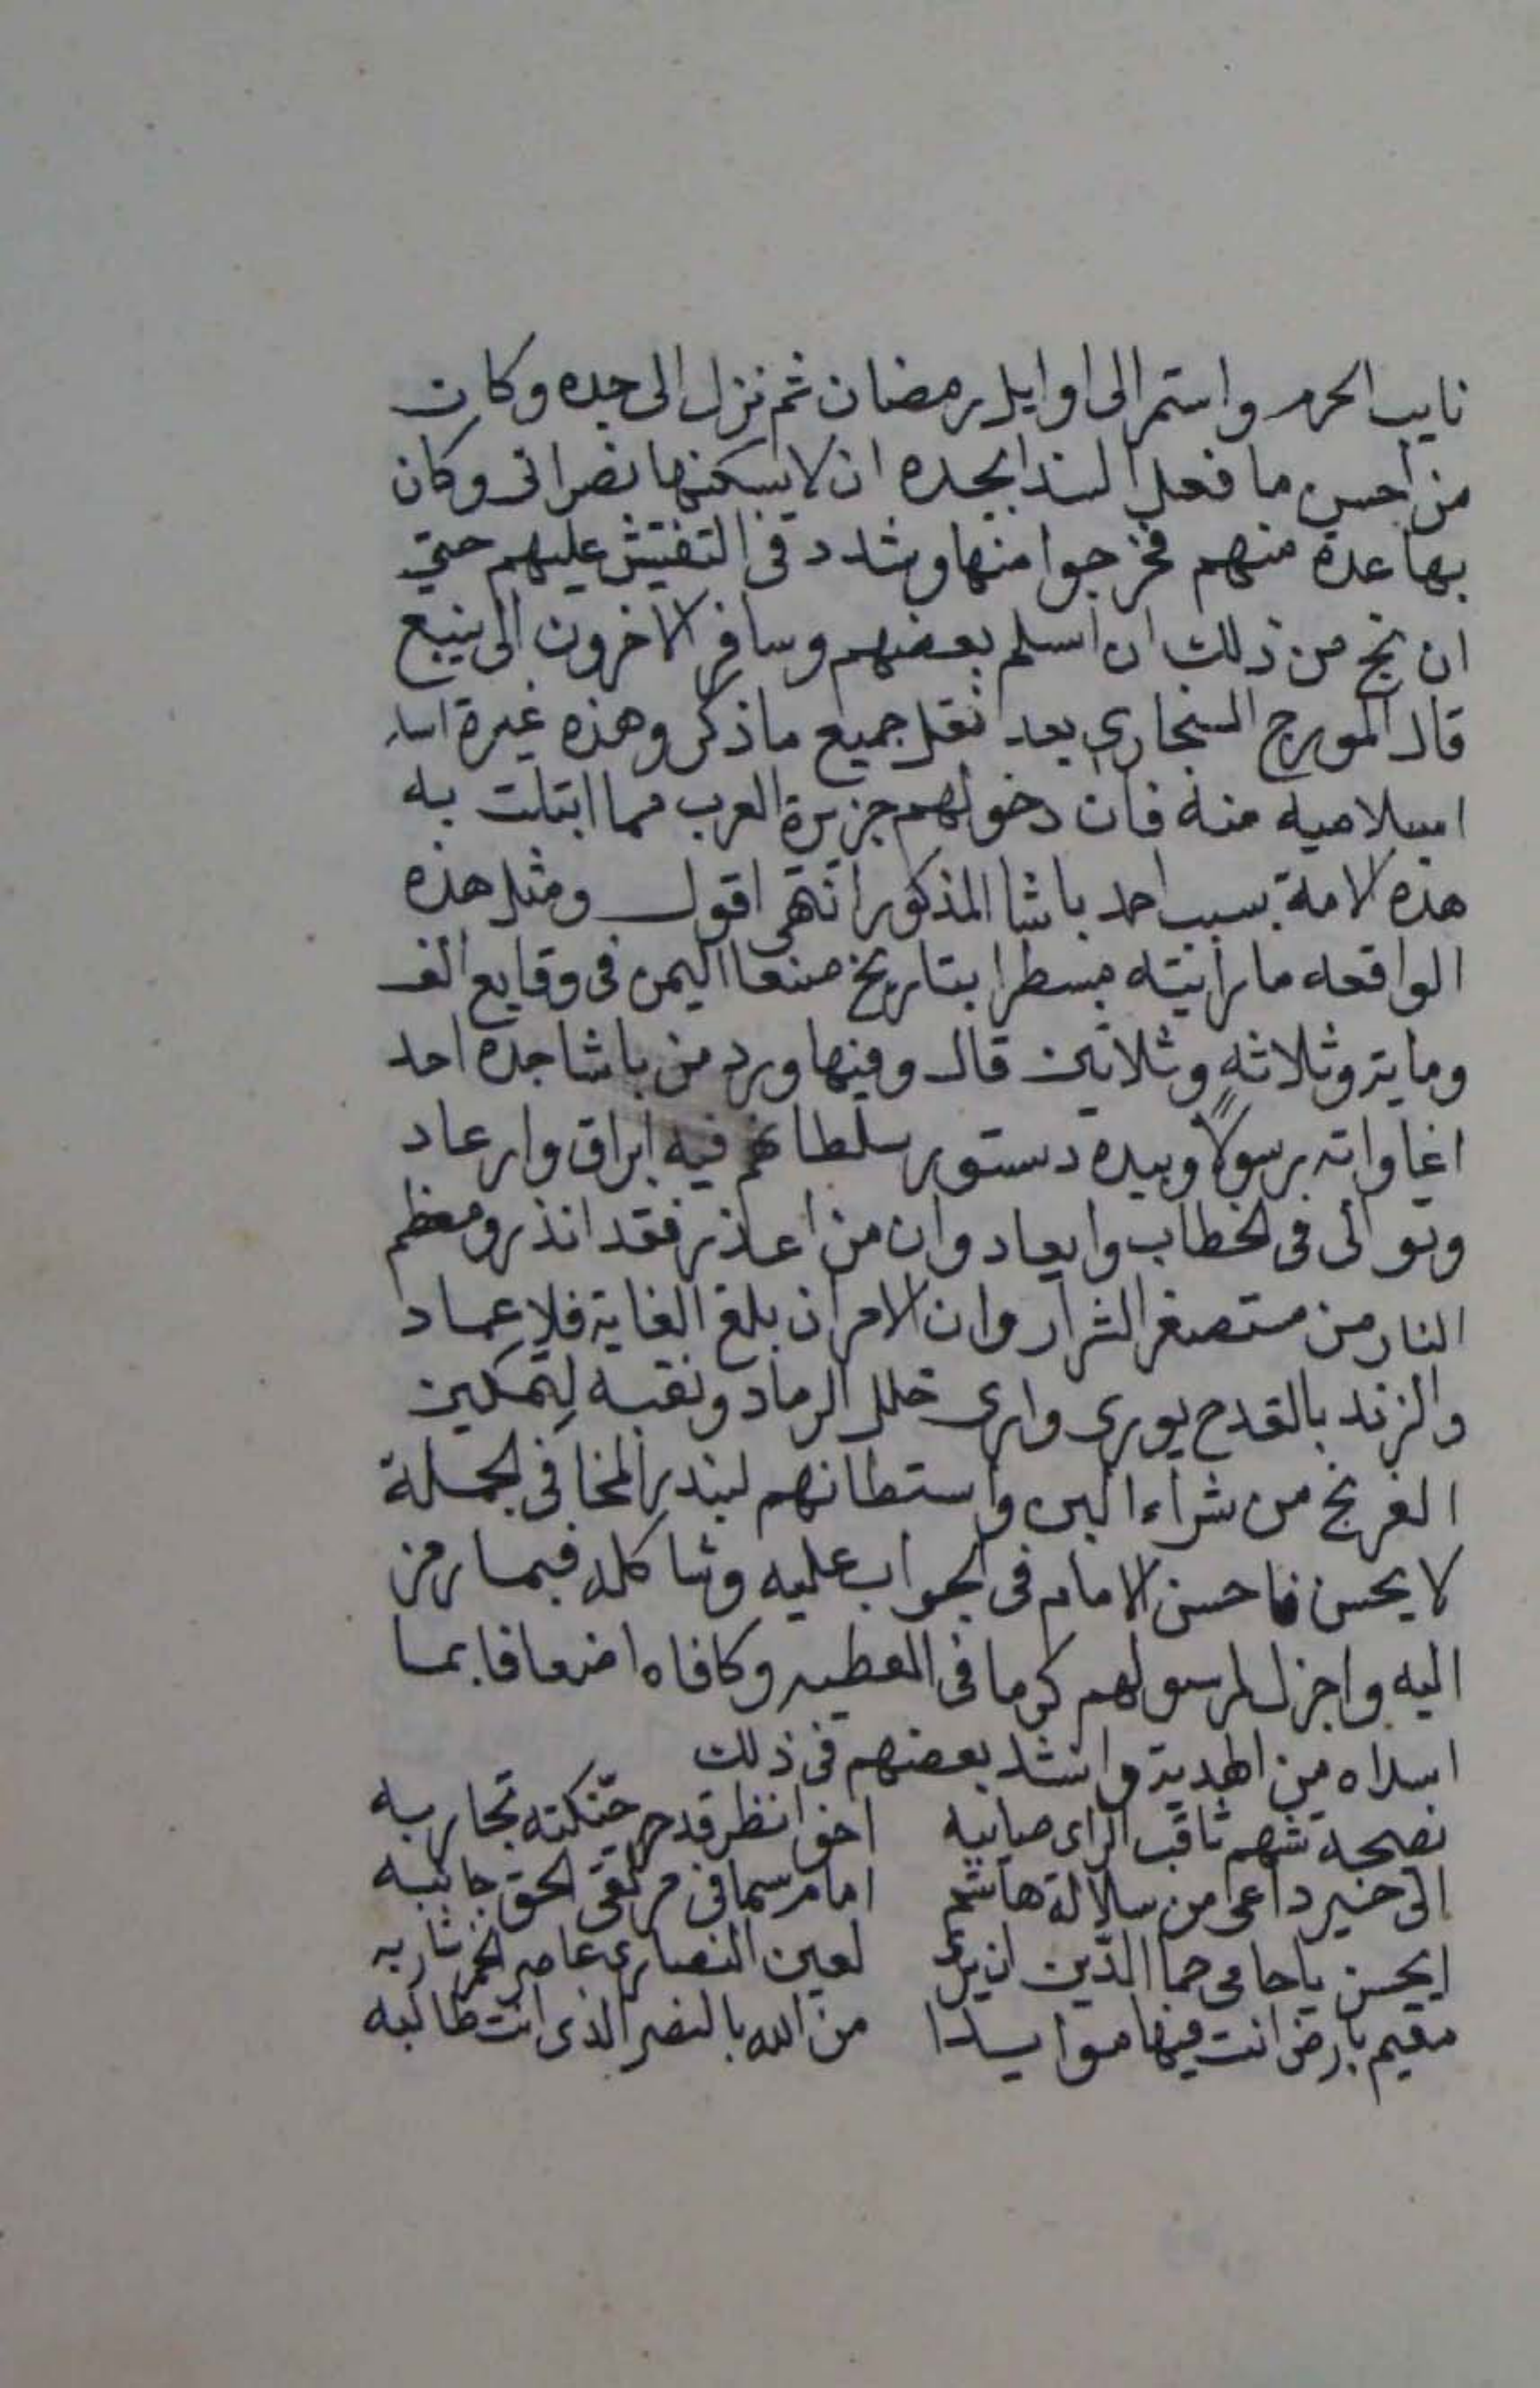 نايب الحرم واستمر الى اوايل رمضان ثم نزل الى جده وكان
من احسن ما فعل الندا بجده ان لا يسكنها نصراني وكان
بها عدة منهم فخرجوا منها وشدد في التفتيش عليهم حتى
ان نتج من ذلك ان اسلم بعضهم وسافر الاخرون الى ينبع
قال المورج السنجاري بعد نقل جميع ما ذكر وهذه غيرة
اسلامية منه فان دخولهم جزيرة العرب مما ابتلت به
هذه الامة بسبب احمد باشا المذكور انتهى اقول ومثل هذه
الواقعه ما رأيته مسطرا بتاريخ صنعا اليمن في وقايع الف
وماية وثلاثه وثلاثين قال وفيها ورد من باشا جده احد
اغاواته رسولاً وبيده دستور سلطانهم فيه ابراق وارعاد
وتوالى في الخطاب وايعاد وان من اعذر فقد انذر ومعظم
النار من مستصغر الشرار وان الامر ان بلغ الغاية فلا عماد
والزند بالقدح يورى وارى خلل الرماد ونقبه لِتمكين
الفرنج من شراء البن واستطانهم لبندر المخا في الجملة
لا يحسن فاحسن الامام في الجواب عليه وشاكله فيما رمز
اليه واجزل لرسولهم كرما في العطيه وكافاه اضعافا بما
اسداه من الهدية وانشد بعضهم في ذلك
نصحه شهم ثاقب الراى صايبه اخو انظر قد حنّكته تجاربه
الى خير داعى من سلالة هاشم امام سما في مرتقى الحق جانبه
ايحسن يا حامى حما الدّين ان يرى لعين النصارى عاصر الخمر شاربه
مقيم بارض انت فيها مويدا من الله بالنصر الذى انت طالبه